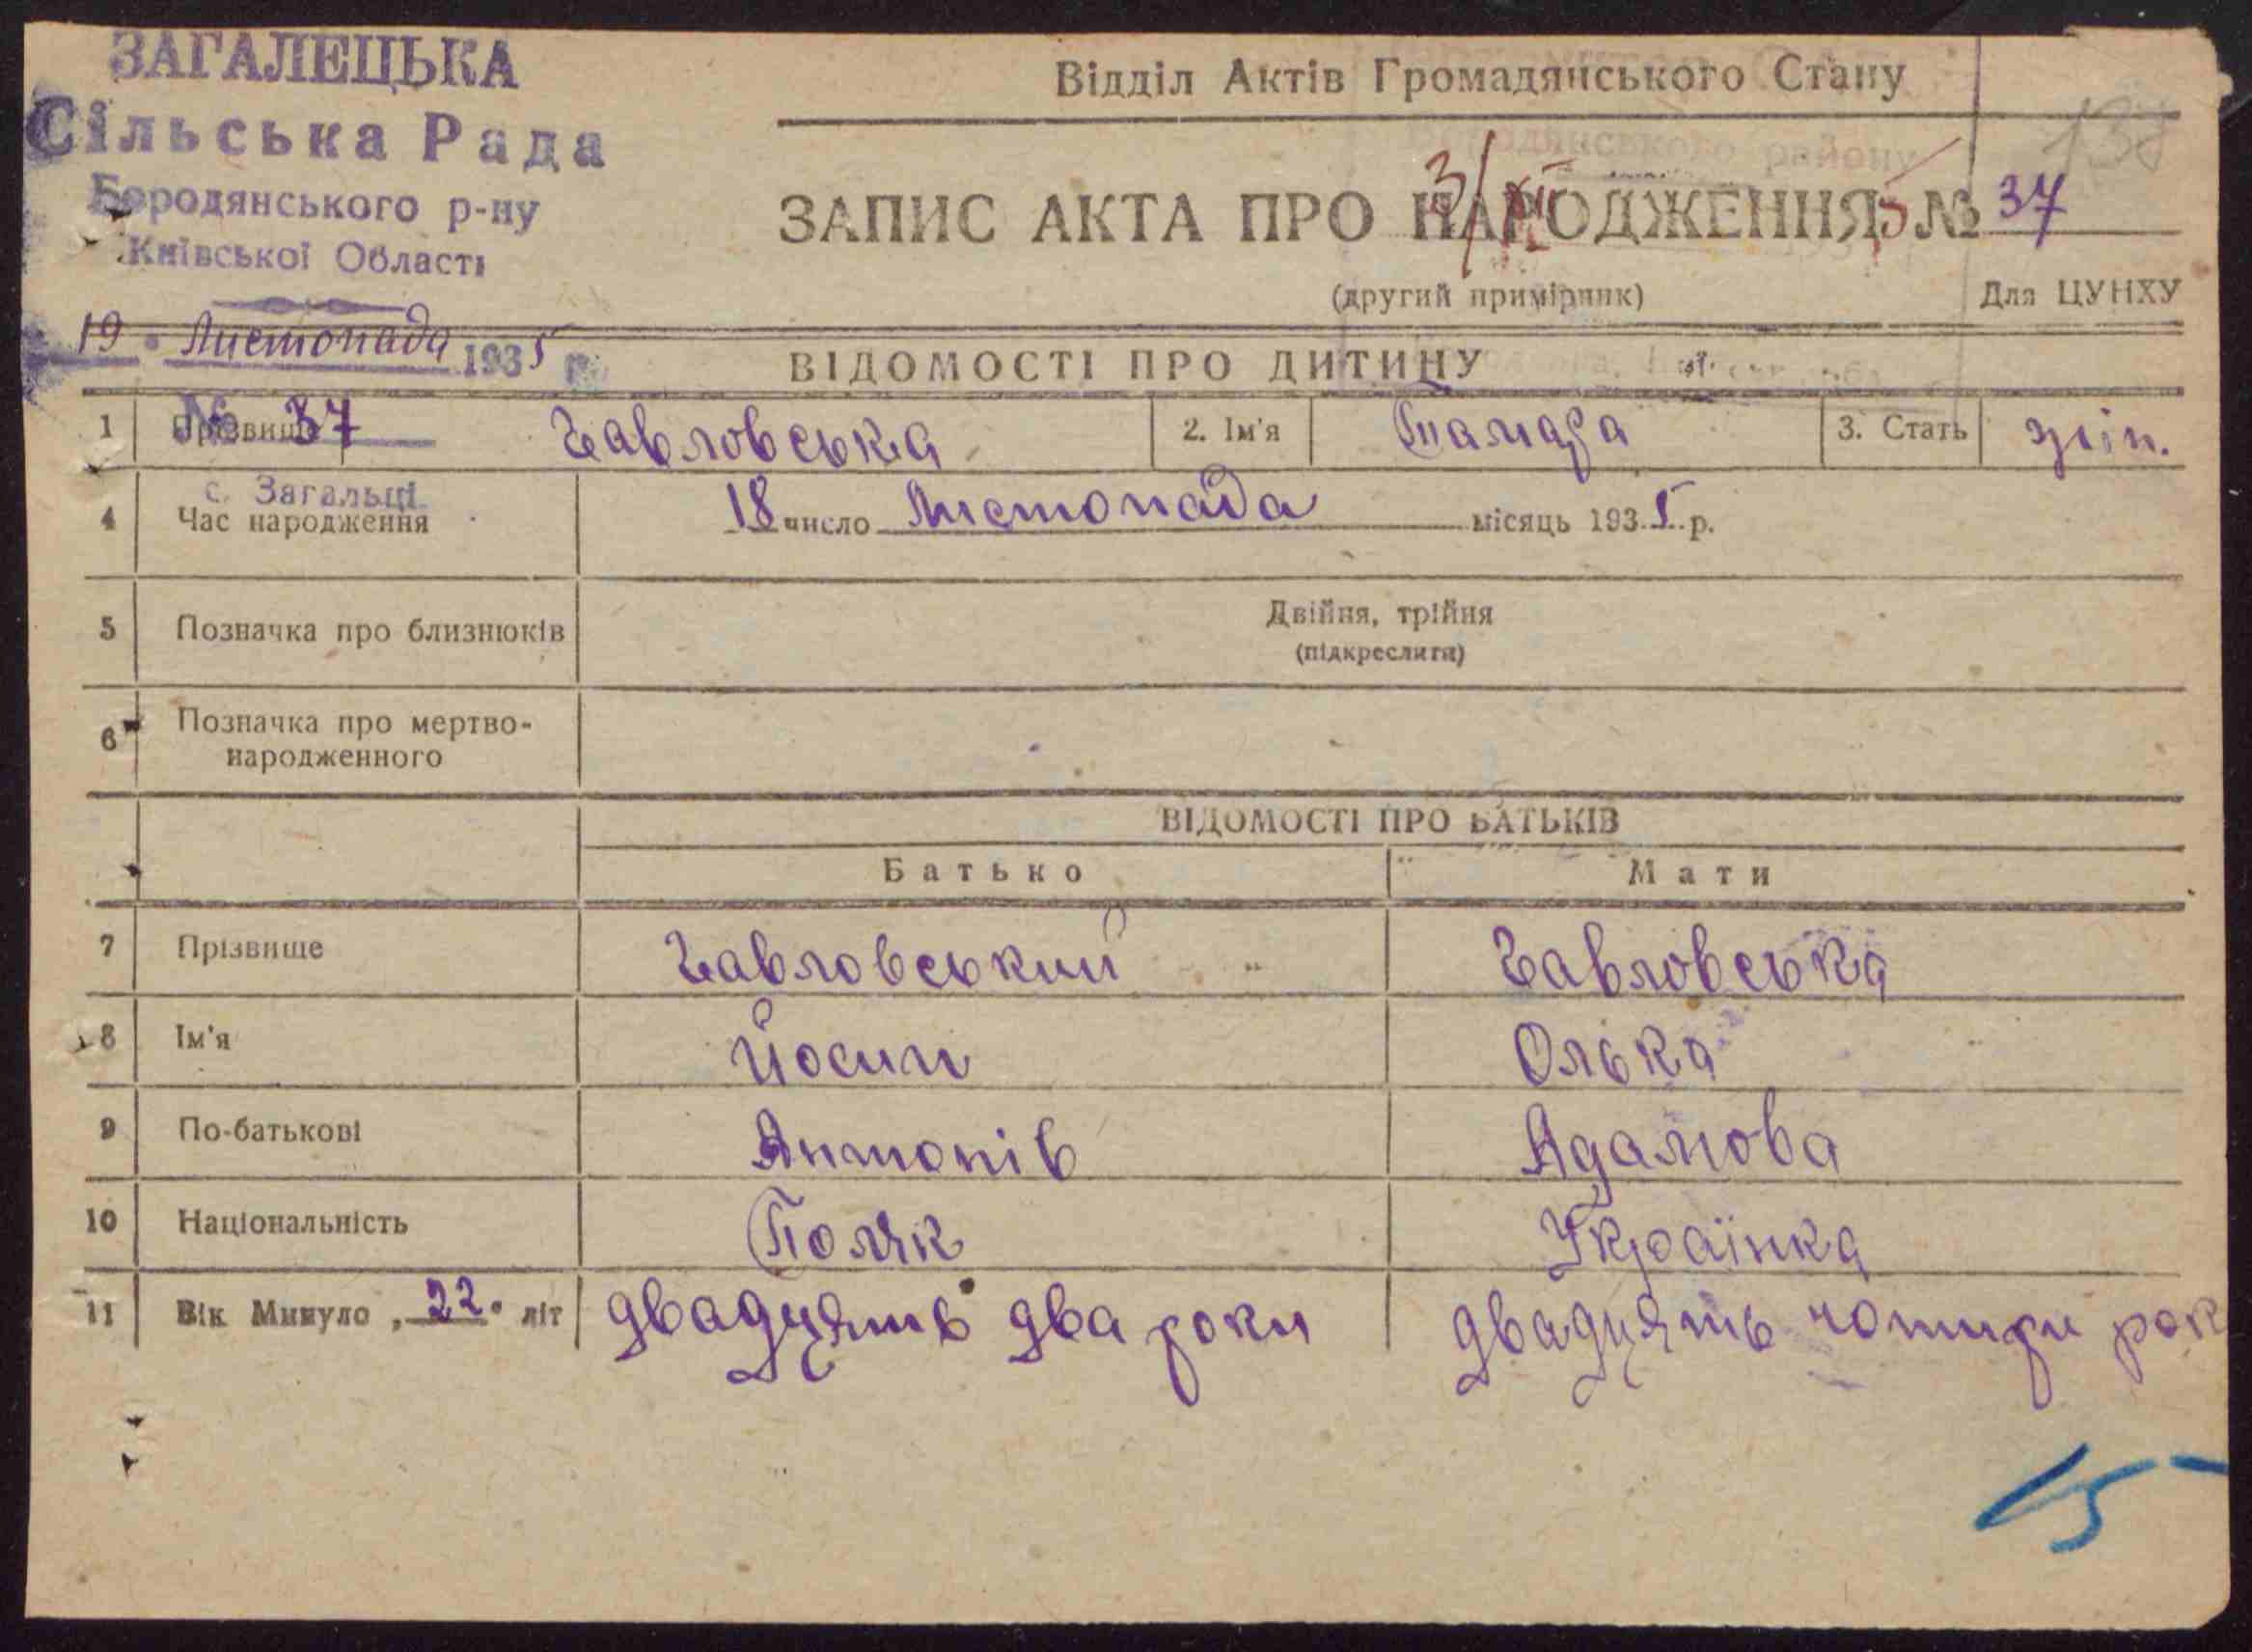 ЗАГАЛЕЦЬКА
Сільська Рада
Бородянського р-ну
Київської Області
19 Листопада 1935 р.
№ 37
с. Загальці
Відділ Актів Громадянського Стану
137
ЗАПИС АКТА ПРО НАРОДЖЕННЯ № 37
(другий примірник) Для ЦУНХУ
ВІДОМОСТІ ПРО ДИТИНУ
1 Прізвище Гавловська 2. Ім'я Тамара 3. Стать жін.
4 Час народження 18 число Листопада місяць 1935 р.
5 Позначка про близнюків Двійня, трійня
(підкреслити)
6 Позначка про мертво-
народженного
ВІДОМОСТІ ПРО БАТЬКІВ
Батько Мати
7 Прізвище Гавловський Гавловська
8 Ім'я Йосип Олька
9 По-батькові Антонів Адамова
10 Національність Поляк Українка
11 Вік Минуло „22" літ двадцять два роки двадцять чотири рок
15-